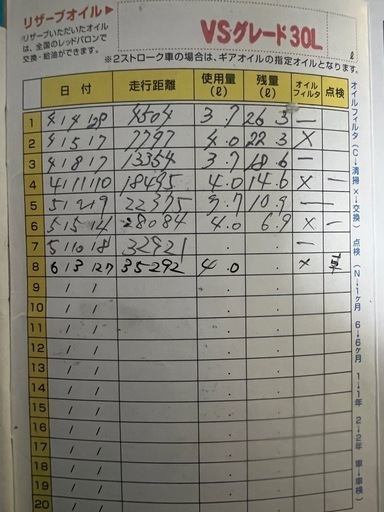 リザーブオイル▶
リザーブいただいたオイル
は、全国のレッドバロンで
交換・給油ができます。
VSグレード30L
ℓ
※2ストローク車の場合は、ギアオイルの指定オイルとなります。
日付 走行距離 使用量(ℓ) 残量(ℓ) オイルフィルタ 点検
1 4/4/28 4504 3.7 26.3 —
2 4/5/7 7797 4.0 22.3 ×
3 4/8/7 13354 3.7 18.6 —
4 4/11/10 18495 4.0 14.6 × —
5 5/2/9 22375 3.7 10.9 — —
6 5/5/4 28084 4.0 6.9 × —
7 5/10/8 32921 —
8 6/3/27 35292 4.0 ×
9 / / .
10 / / .
11 / / .
12 / / .
13 / / .
14 / / .
15 / / .
16 / / .
17 / / .
18 / / .
19 / / .
20 / / .
オイルフィルタ(C→清掃 ×→交換) 点検(N→1ヶ月 6→6ヶ月 1→1年 2→2年 車→車検)